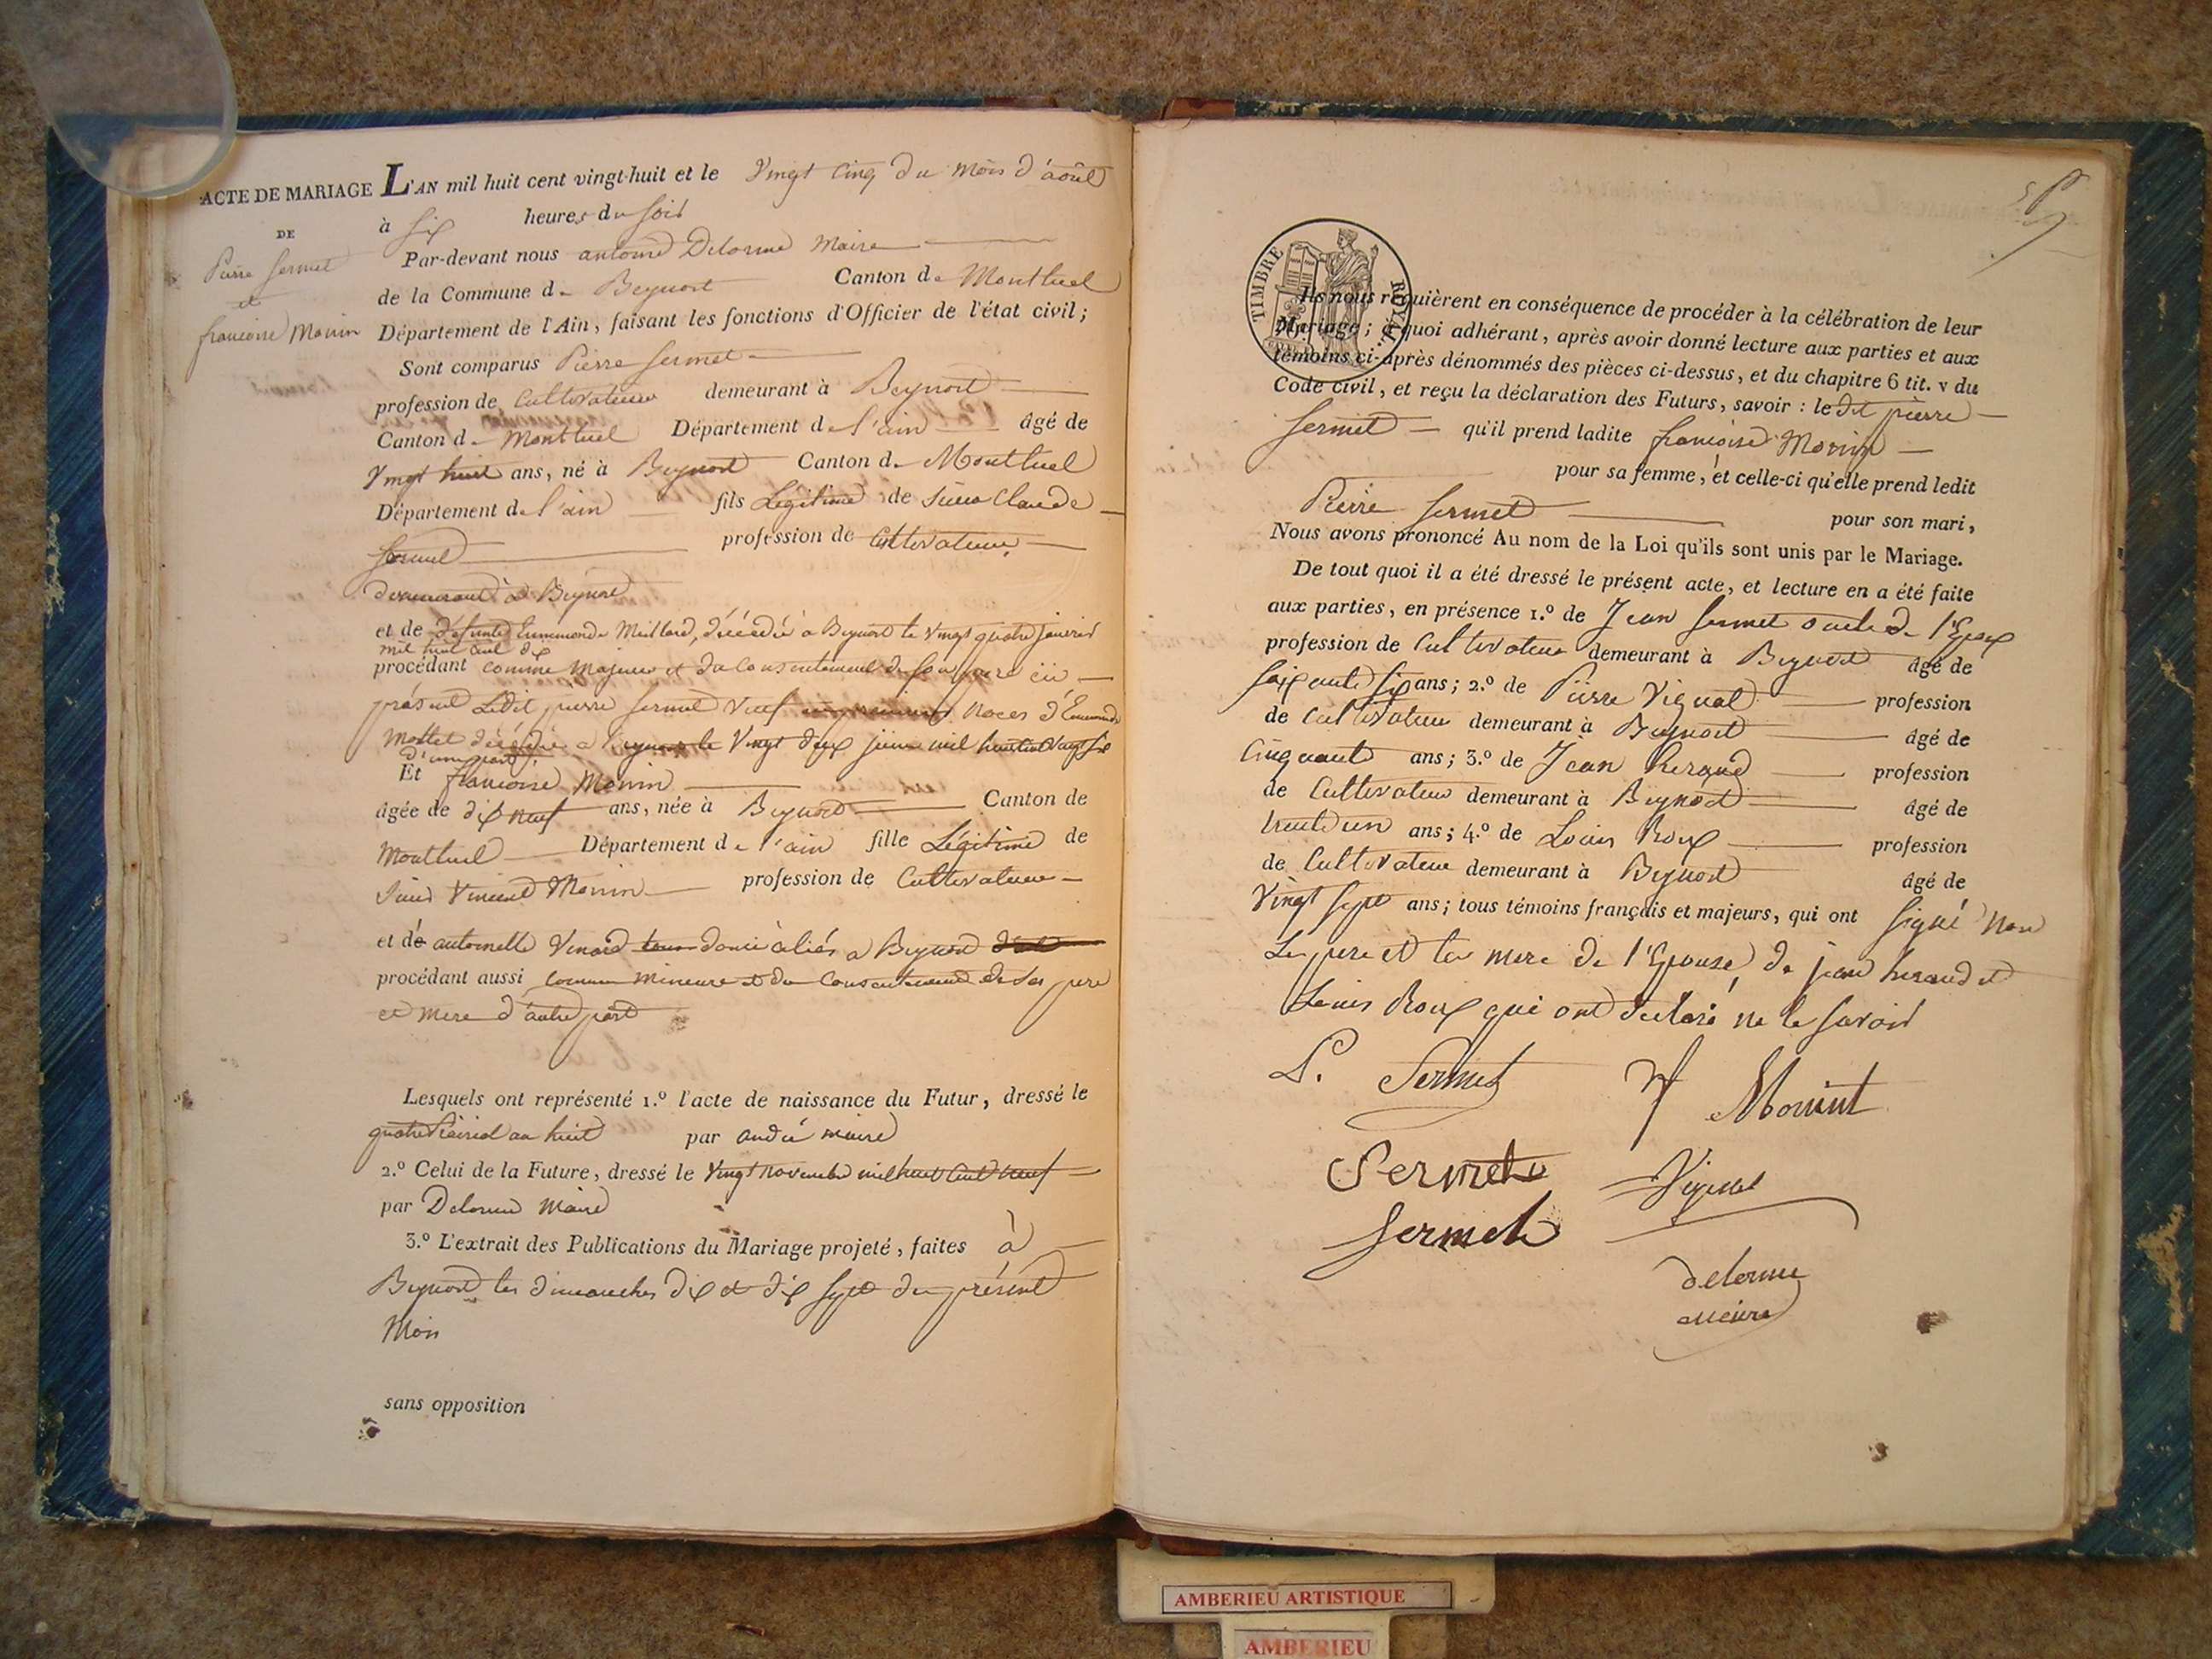 ACTE DE MARIAGE
DE
Pierre Sermet
et
françoise Monin
L'AN mil huit cent vingt-huit et le Vingt cinq du mois d'août
à six heures du soir
Par-devant nous antoine Delorme Maire
de la Commune de Beynost Canton de Montluel
Département de l'Ain, faisant les fonctions d'Officier de l'état civil;
Sont comparus Pierre Sermet
profession de Cultivateur demeurant à Beynost
Canton de Montluel Département de l'ain âgé de
Vingt huit ans, né à Beynost Canton de Montluel
Département de l'ain fils Légitime de Sieur Claude
Sermet profession de Cultivateur
demeurant à Beynost
et de défunte Ennemonde Meillard, décédée à Beynost le vingt quatre janvier
mil huit cent dix
procédant comme Majeur et du Consentement de son père ici
présent Ledit pierre Sermet Veuf noces d'Ennemonde
Mottet décédée a Beynost le Vingt deux juin mil huit cent vingt six
d'une part
Et françoise Monin
âgée de dix neuf ans, née à Beynost Canton de
Montluel Département de l'ain fille Légitime de
Sieur Vincent Monin profession de Cultivateur
et de antoinette Venard domiciliés a Beynost
procédant aussi comme mineure et du Consentement de ses pere
et mere d'autre part
Lesquels ont représenté 1.º l'acte de naissance du Futur, dressé le
quatre Prairial an huit par andré maire
2.º Celui de la Future, dressé le Vingt novembre mil huit cent neuf
par Delorme Maire
3.º L'extrait des Publications du Mariage projeté, faites à
Beynost les dimanches dix et dix sept du présent
Mois
sans opposition
TIMBRE ROYAL
Ils nous requièrent en conséquence de procéder à la célébration de leur
Mariage; à quoi adhérant, après avoir donné lecture aux parties et aux
témoins ci-après dénommés des pièces ci-dessus, et du chapitre 6 tit. v du
Code civil, et reçu la déclaration des Futurs, savoir: le dit pierre
Sermet qu'il prend ladite françoise Monin
pour sa femme, et celle-ci qu'elle prend ledit
Pierre Sermet pour son mari,
Nous avons prononcé Au nom de la Loi qu'ils sont unis par le Mariage.
De tout quoi il a été dressé le présent acte, et lecture en a été faite
aux parties, en présence 1.º de Jean Sermet oncle de l'Epoux
profession de Cultivateur demeurant à Beynost âgé de
soixante six ans; 2.º de Pierre Vignat profession
de Cultivateur demeurant à Beynost âgé de
Cinquante ans; 3.º de Jean heraud profession
de Cultivateur demeurant à Beynost âgé de
trente un ans; 4.º de Louis Roux profession
de Cultivateur demeurant à Beynost âgé de
Vingt sept ans; tous témoins français et majeurs, qui ont signé non
Le pere et la mere de l'Epouse, de jean heraud et
Louis Roux qui ont déclaré ne le savoir
P. Sermet
Monint
Sermet
Vignat
Sermet
delorme
maire
AMBERIEU ARTISTIQUE
AMBERIEU